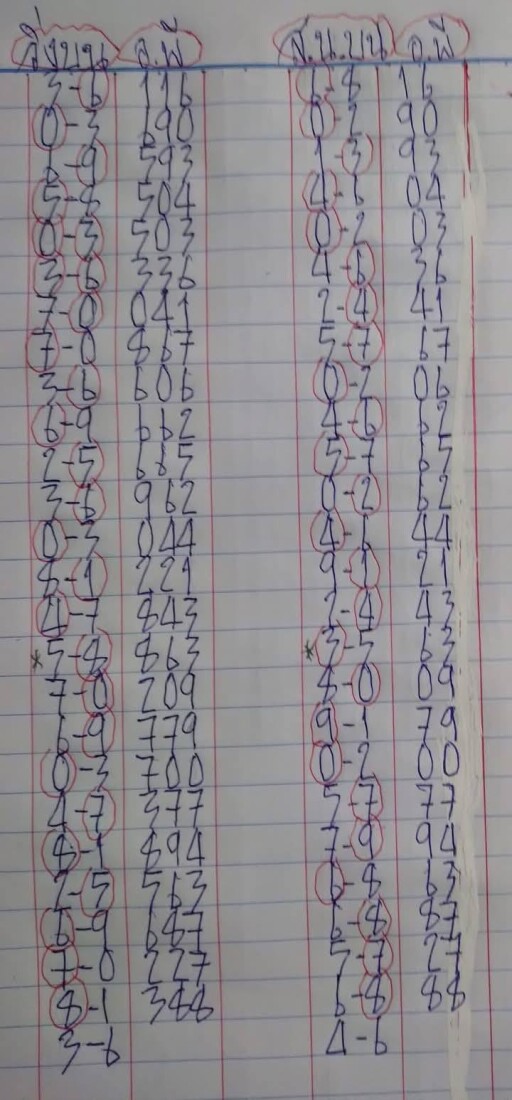 จ.พ จ.พี
3-6 116 6-8 16
0-3 690 0-2 90
6-9 593 1-3 93
5-8 504 4-6 04
0-3 503 0-2 03
3-6 336 4-6 36
7-0 041 2-4 41
7-0 867 5-7 67
3-6 606 0-2 06
6-9 662 4-6 62
2-5 665 5-7 65
3-6 962 0-2 62
0-3 044 4-6 44
8-1 221 9-1 21
4-7 843 2-4 43
*5-8 863 *3-5 63
7-0 209 8-0 09
6-9 779 9-1 79
0-3 700 0-2 00
4-7 377 5-7 77
8-1 894 7-9 94
2-5 563 6-8 63
6-9 687 6-8 87
7-0 227 5-7 27
8-1 388 6-8 88
3-6 4-6